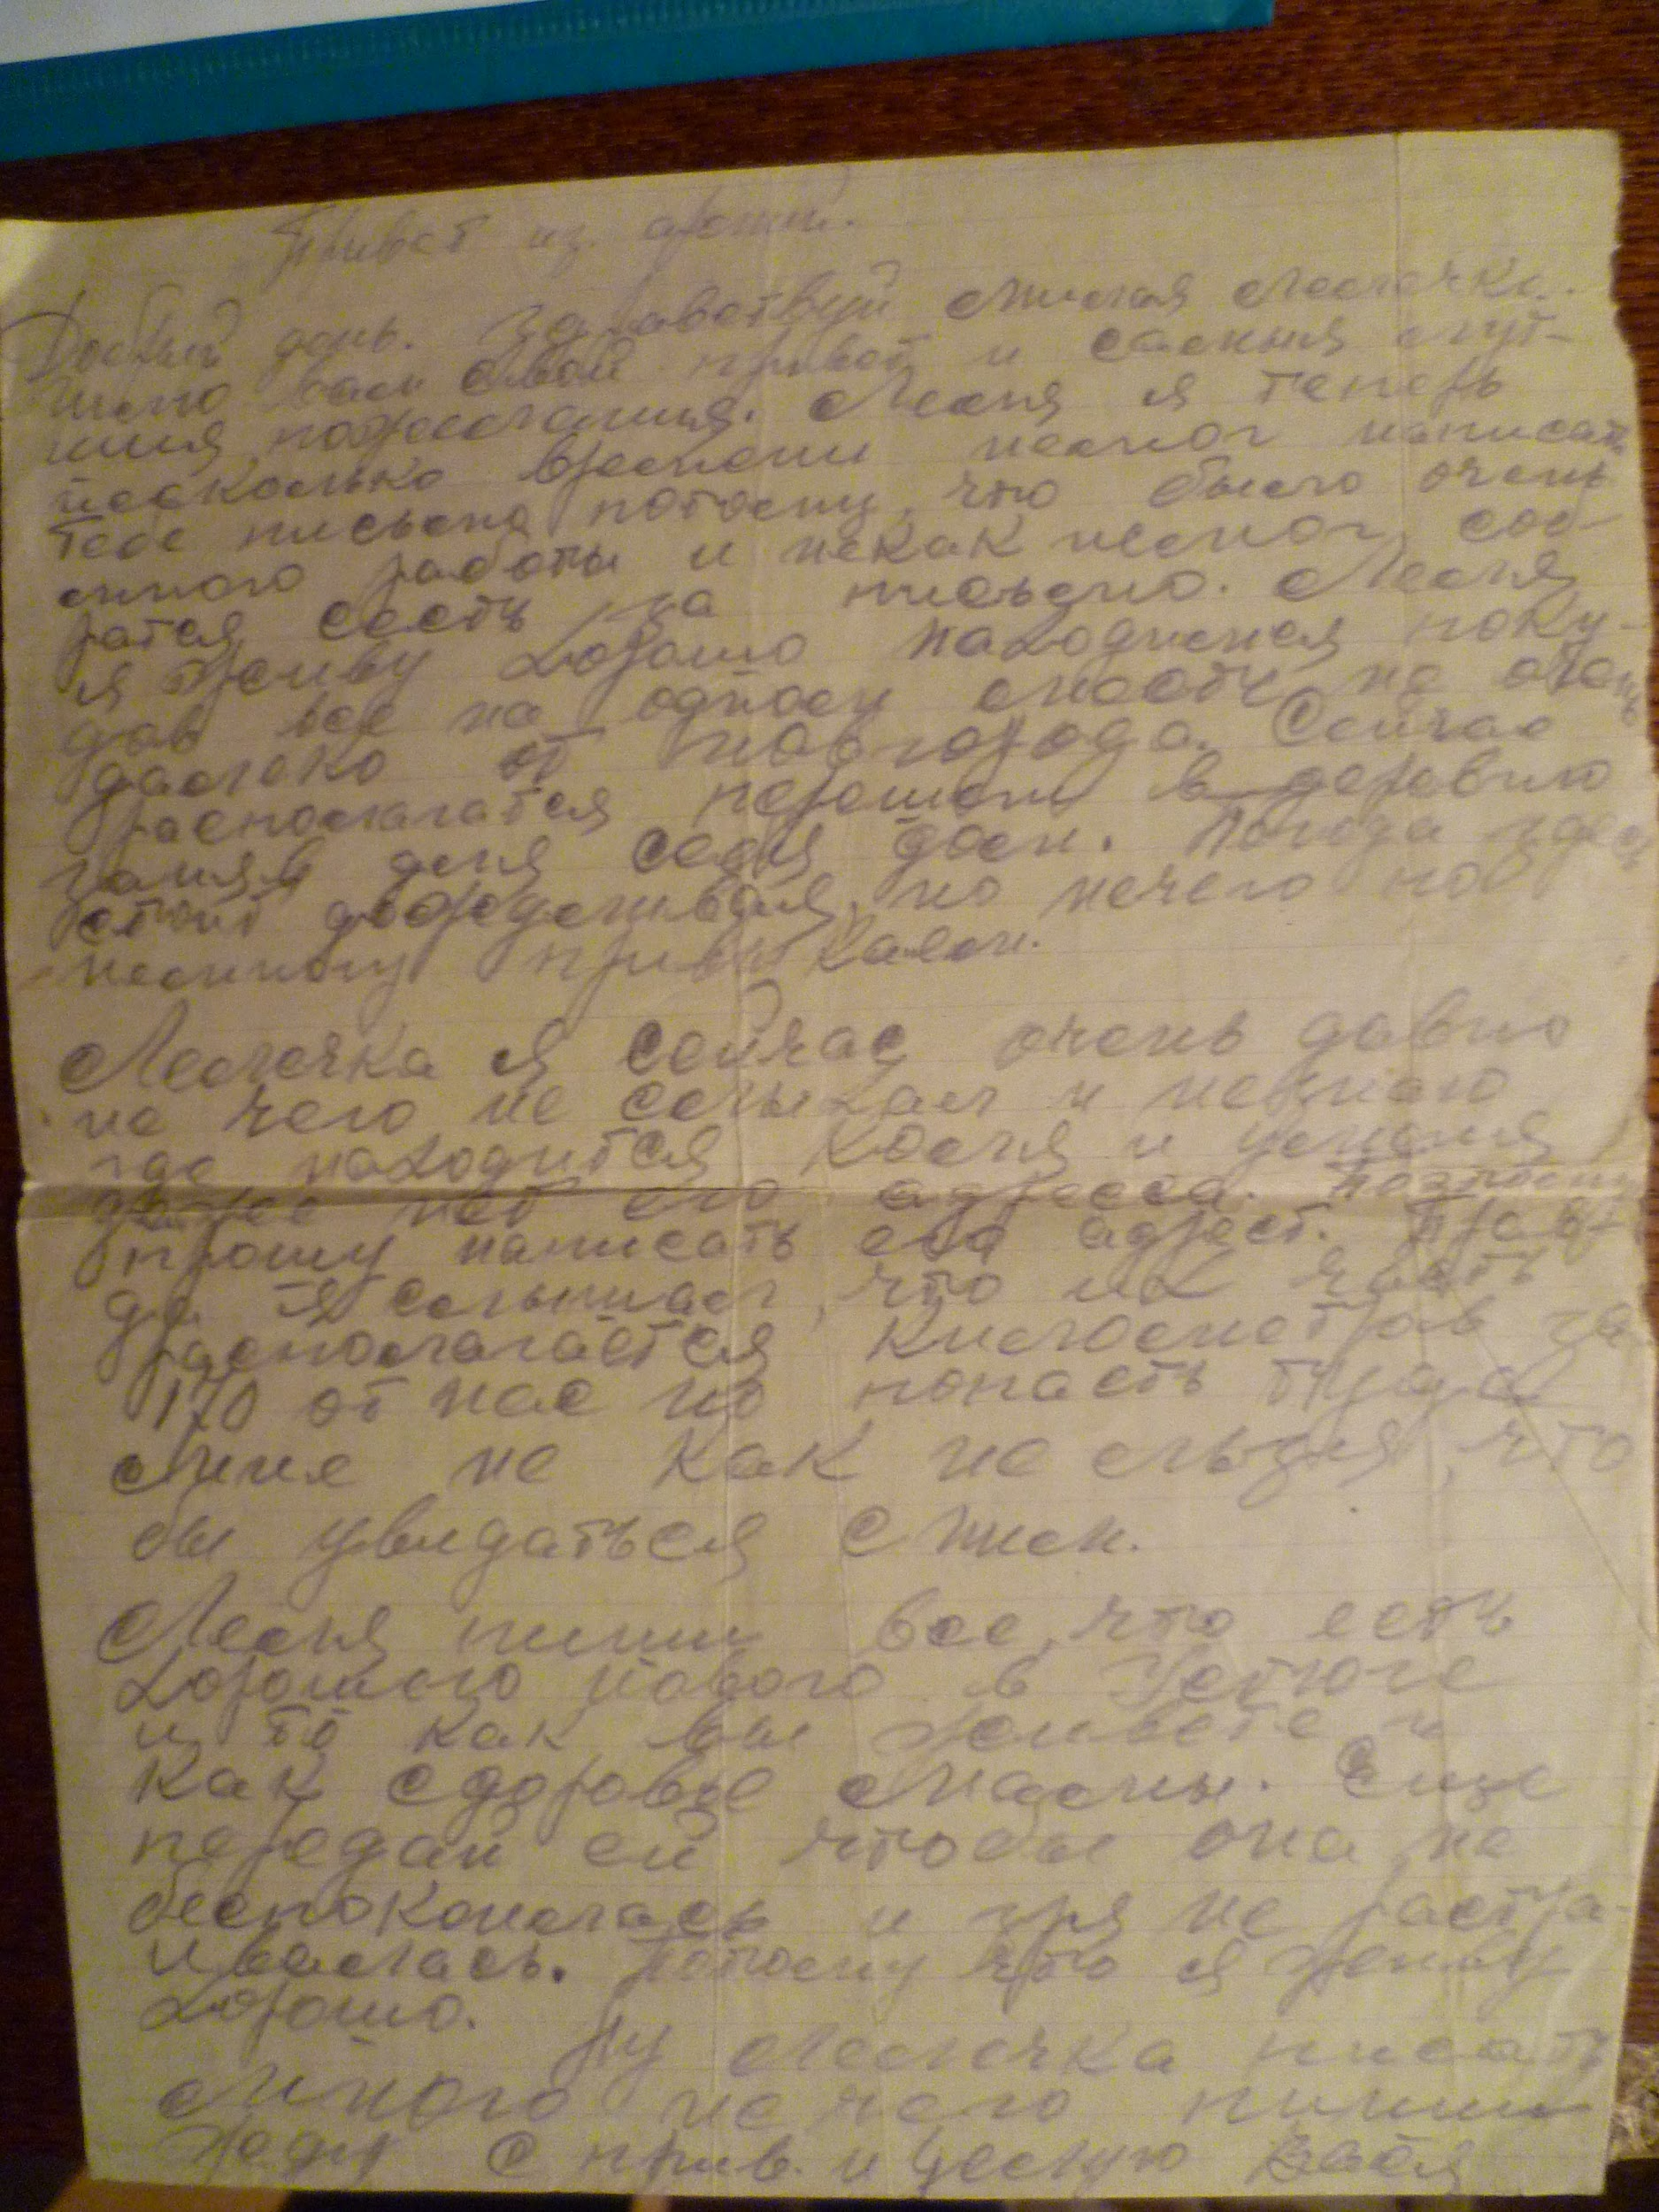 Привет из армии.
Добрый день. Здравствуй милая Лелечка.
Шлю вам свой привет и самыя луч-
шия пожелания. Леля я теперь
несколько времени немог написать
тебе письмо потому, что было очень
много работы и некак немог соб-
ратся сесть за письмо. Леля
я живу хорошо находимся поку-
дов все на одном месте не очень
далеко от Новгорода. Сейчас
распологатся перешли в деревню
заняв для себя дом. Погода здесь
стоит дождливая, но нечего по
немногу привыкаем.
Лелечка я сейчас очень давно
не чего не слыхал и незнаю
где находится Коля и уменя
даже нет его адресса. Поэтому
прошу написать его адрест. Прав-
да я слышал, что их часть
распологается километров за
170 от нас но попасть туда
мне не как не льзя, что
бы увидаться с ним.
Леля пиши все, что есть
хорошего нового в Устюге
и то как вы живете и
как сдоровье мамы. Еще
передай ей чтобы она не
беспокоилась и зря не растра-
ивалась. Потому что я живу
хорошо.
Ну Лелечка писать
много нечего пиши
жду с прив. и целую Вася